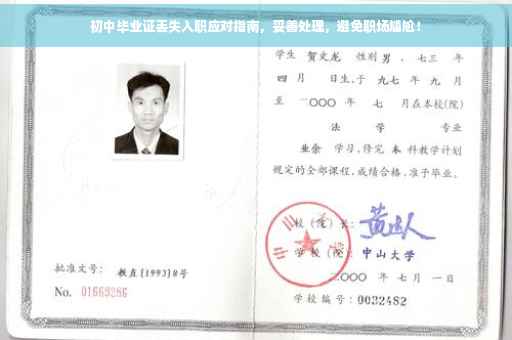 初中毕业证丢失入职应对指南，妥善处理，避免职场尴尬！
学生 贺文龙 性别 男 、七三 年
四 月 日生，于 九七 年 九 月
至 二〇〇〇 年 七 月在本校(院)
法 学 专业
业余 学习，修完 本 科教学计划
规定的全部课程，成绩合格，准予毕业。
校（院）长：
学 校（院）： 中山大学
二〇〇〇 年 七 月 一 日
学校编号：0032482
批准文号： 教直[1993]8号
No. 01669286